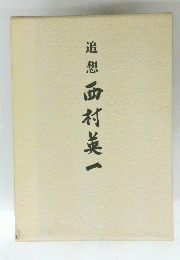 追想
西村英一